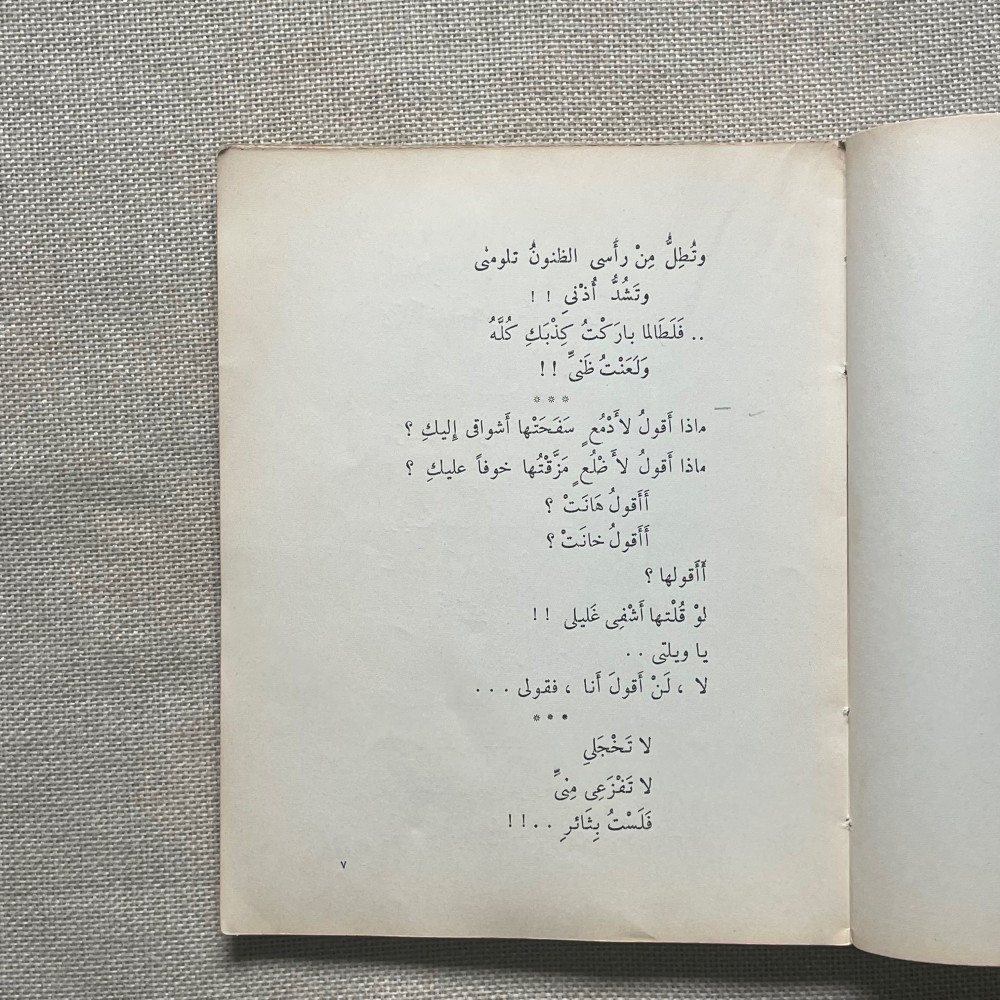 وتُطِلُّ مِنْ رأَسى الظنونُ تلومنى
وتَشُدُّ أُذْنىِ ! !
.. فَلَطَالما بارَكْتُ كِذْبَكِ كُلَّهُ
وَلَعَنْتُ ظَنىِّ !!
* * *
ماذا أَقولُ لأَدْمُعٍ سَفَحَتْها أَشواقى إِليكِ ؟
ماذا أَقولُ لأَضْلُعٍ مَزَّقْتُها خوفاً عليكِ ؟
أَأَقولُ هَانَتْ ؟
أَأَقولُ خانَتْ ؟
أَأَقولها ؟
لوْ قُلْتها أَشْفِى غَليلى !!
يا ويلتى ..
لا ، لَنْ أَقولَ أَنا ، فقولى ...
* * *
لا تَخْجَلىِ
لا تَفْزَعِى مِنىِّ
فَلَسْتُ بِثَائرِ ..!!
٧